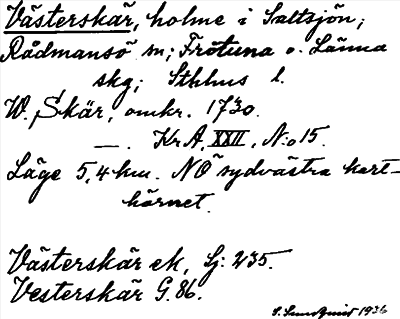 Västerskär, holme i Saltsjön;
Rådmansö sn; Frötuna o. Länna
skg; Sthlms l.
W. Skär, omkr. 1730.
—. Kr A, XXII, N:o 15.
Läge 5,4 km. NO sydvästra kart-
hörnet.
Västerskär ek, Sj: 235.
Vesterskär G. 86.
1936